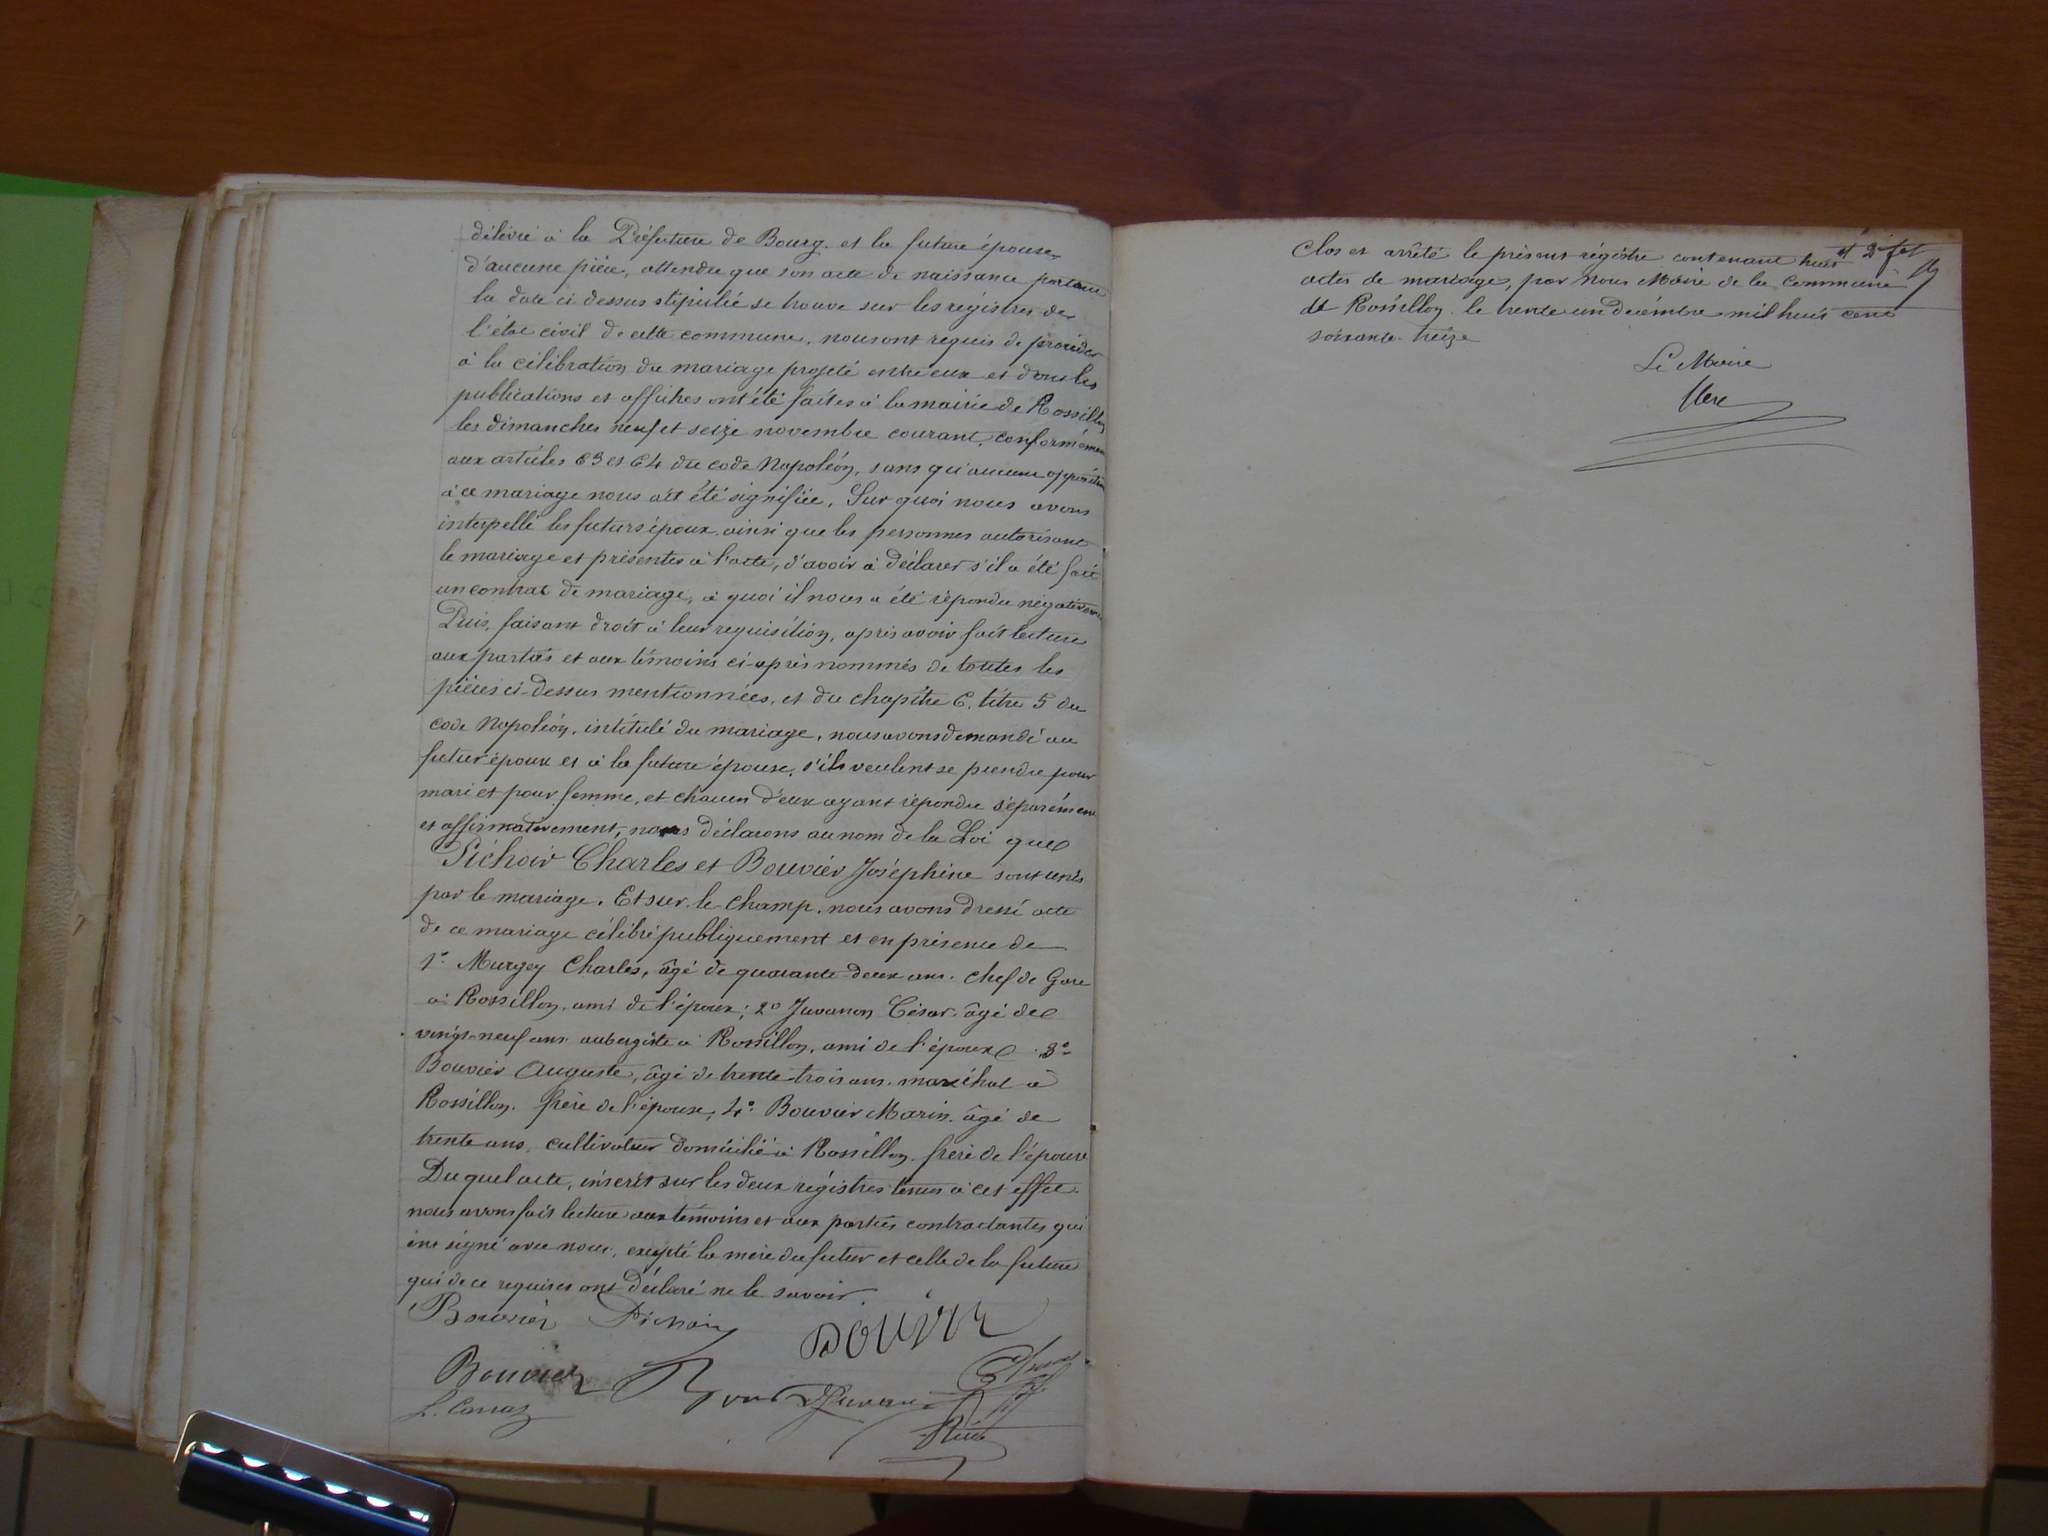 délivré à la Préfecture de Bourg. et la future épouse,
d'aucune pièce, attendu que son acte de naissance portant
la date ci dessus stipulée se trouve sur les registres de
l'état civil de cette commune, nous ont requis de procéder
à la célébration du mariage projeté entre eux et dont les
publications et affiches ont été faites à la mairie de Rossillon
les dimanches neuf et seize novembre courant, conformément
aux articles 63 et 64 du code Napoléon, sans qu'aucune opposition
à ce mariage nous ait été signifiée. Sur quoi nous avons
interpellé les futurs époux ainsi que les personnes autorisant
le mariage et présentes à l'acte, d'avoir à déclarer s'il a été fait
un contrat de mariage, à quoi il nous a été répondu négativement
Puis, faisant droit à leur requisition, après avoir fait lecture
aux parties et aux témoins ci-après nommés de toutes les
pièces ci-dessus mentionnées, et du chapitre 6, titre 5 du
code Napoléon, intitulé du mariage, nous avons demandé au
futur époux et à la future épouse, s'ils veulent se prendre pour
mari et pour femme, et chacun d'eux ayant répondu séparément
et affirmativement, nous déclarons au nom de la Loi que
Pichoir Charles et Bouvier Joséphine sont unis
par le mariage. Et sur le champ, nous avons dressé acte
de ce mariage célébré publiquement et en présence de
1º Murgey Charles, âgé de quarante deux ans. chef de Gare
à Rossillon, ami de l'époux; 2º Juvanon César âgé de
vingt-neuf ans aubergiste à Rossillon, ami de l'époux 3º
Bouvier Auguste, âgé de trente-trois ans, maréchal à
Rossillon. frère de l'épouse, 4º Bouvier Marin âgé de
trente ans, cultivateur domicilié à Rossillon, frère de l'épouse
Du quel acte, inscrit sur les deux régistres tenus à cet effet
nous avons fait lecture aux témoins et aux parties contractantes qui
ont signé avec nous, excepté la mère du futur et celle de la future
qui de ce requises ont déclaré ne le savoir.
Bouvier Pichoir
Bouvier
Clos et arrêté le présent régistre contenant huit
actes de mariage, par nous Maire de la Commune
de Rossillon. le trente un décembre mil huit cent
soixante-treize
Le Maire